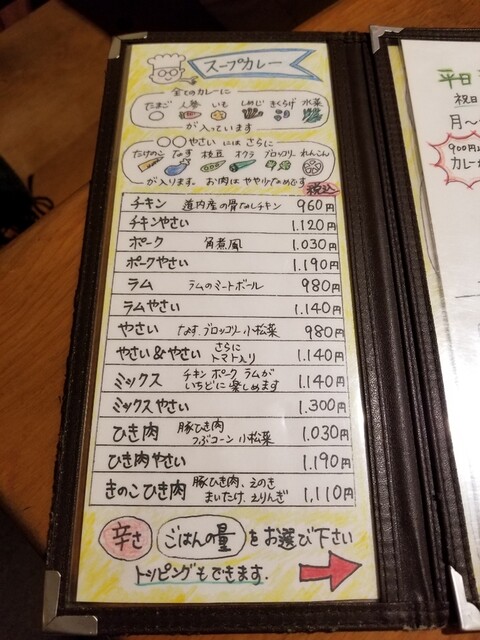 スープカレー
全てのカレーに
たまご 人参 いも しめじ きくらげ 水菜
が入っています
○○やさい には さらに
たけのこ なす 枝豆 オクラ ブロッコリー れんこん
が入ります。 お肉は やや少なめです
税込
チキン 道内産の骨なしチキン 960円
チキンやさい 1.120円
ポーク 角煮風 1.030円
ポークやさい 1.190円
ラム ラムのミートボール 980円
ラムやさい 1.140円
やさい なす.ブロッコリー 小松菜 980円
やさい&やさい さらにトマト入り 1.140円
ミックス チキン ポーク ラムが いちどに楽しめます 1.140円
ミックスやさい 1.300円
ひき肉 豚ひき肉 つぶコーン 小松菜 1.030円
ひき肉やさい 1.190円
きのこひき肉 豚ひき肉、えのき まいたけ.えりんぎ 1,110円
辛さ ごはんの量 をお選び下さい
トッピングもできます.
平日
祝日
月〜
900円
カレー